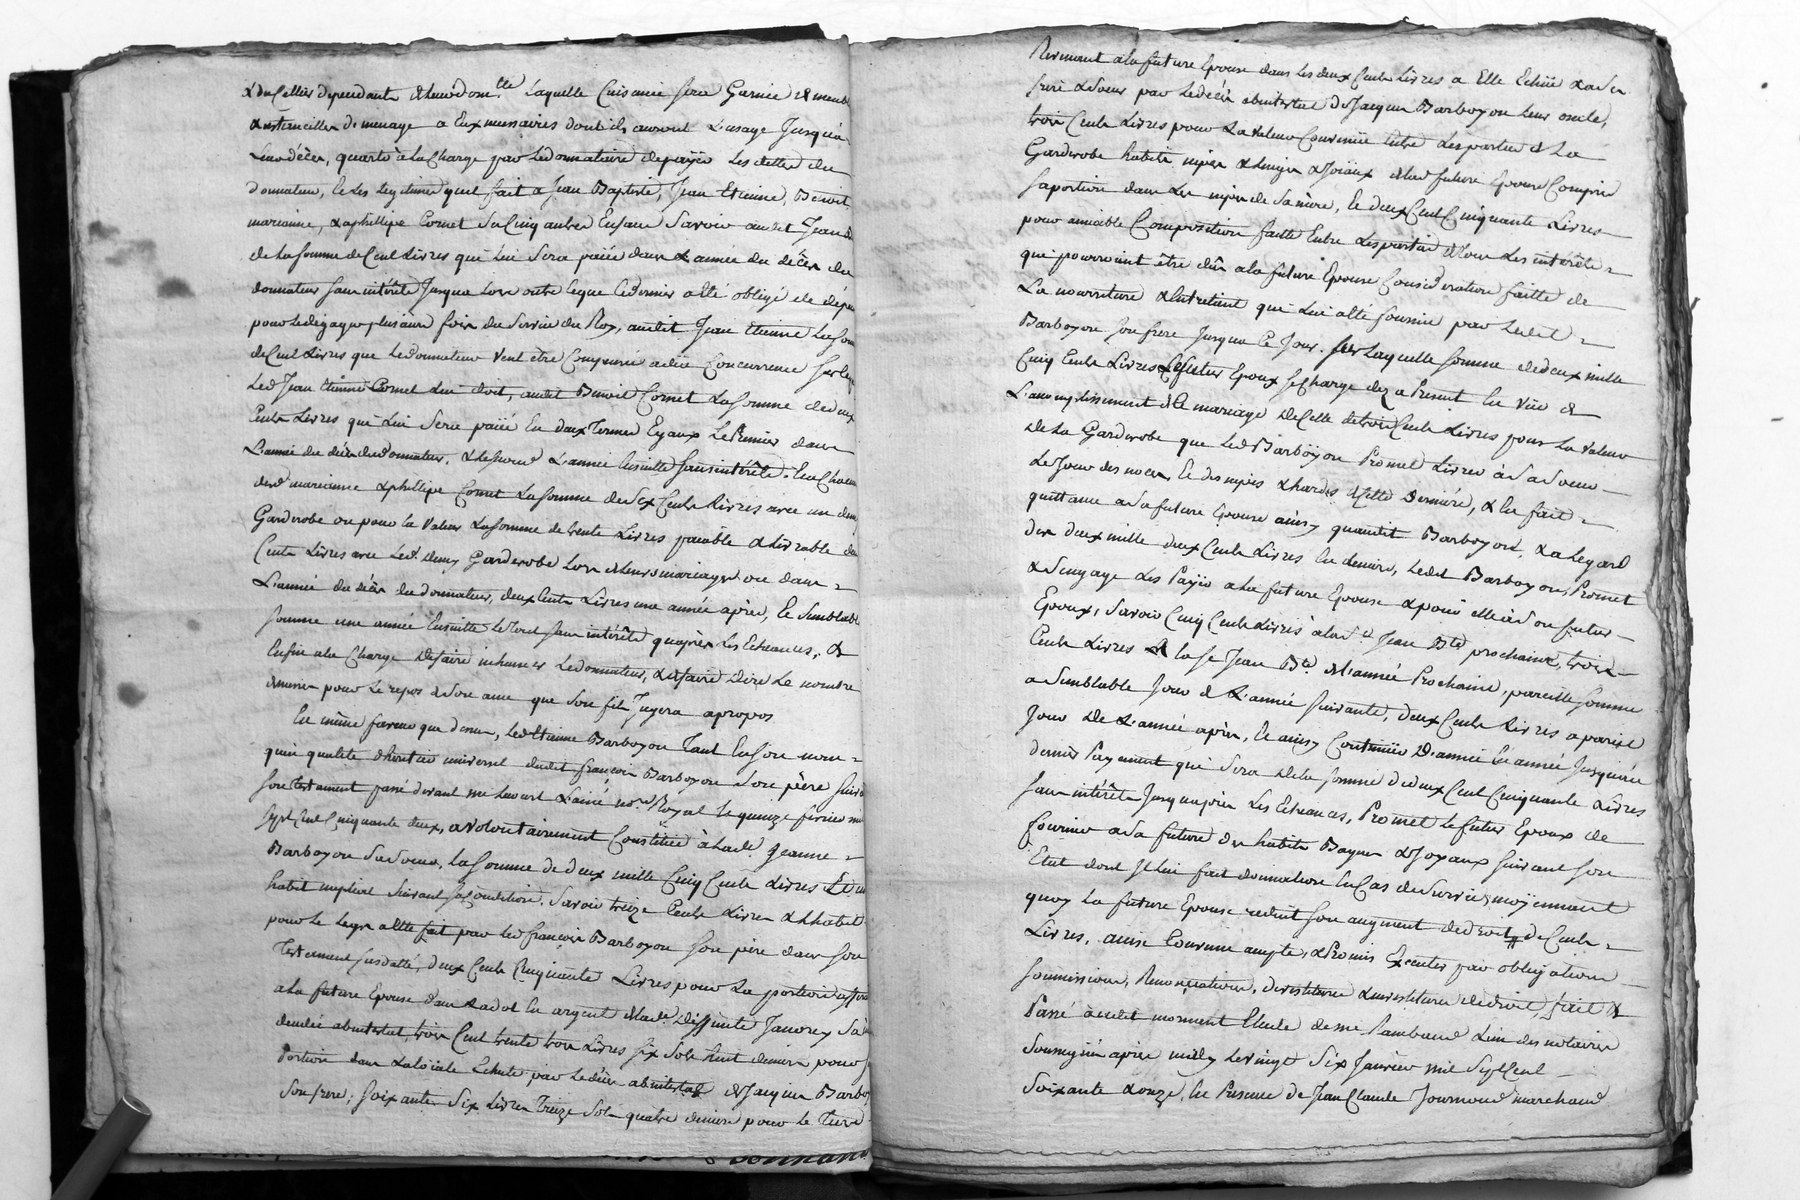 & du Cellier dependants de leur dom.lle laquelle Cuisinne sera Garnie de meubl
& ustencilles de menage a Eux necessaires dont ils auront L'usage Jusqu'a
Leur décès, quarto à la Charge par le donnataire de payer les dettes du
donnateur, & les legitimes quil fait a Jean Baptiste, Jean Etienne, Benoit
marianne, & phillipe Cornet Ses Cinq autres Enfans Savoir audit Jean B
de la somme de Cent Livres qui Lui Sera païée dans L'année du décès du
donnateur sans intérêts Jusqu'a lors outre ceque Ce dernier a été obligé de dépen
pour le dégager plusieurs fois du Service du Roy, audit Jean Etienne La som
de Cent Livres que le donnateur veut être Compensée a düe Concurrence sur ce
Led Jean Etienne Cornet Lui doit, audit Benoit Cornet La somme de deux
Cents Livres qui Lui Sera païée En deux Termes Egaux Le Premier dans
L'année du décès du donnateur, & le second L'année Ensuitte sans intérêts. Et a Chacune
desd marianne & phillipe Cornet La somme de Six Cents Livres avec une
Garderobe ou pour la valeur La somme de trente Livres païable & livrable
Cents Livres avec Led. Garderobe lors de leurs mariages ou dans =
L'année du décès du donnateur, deux Cents Livres une année après, & Semblable
somme une année Ensuitte le tout sans intérêts qu'après les Echéances, &
Enfin a la Charge de faire inhumer Le donnateur, & de faire dire Le nombre
de messes pour le repos de Son ame que Son fils Jugera apropos
En même faveur que dessus, led Etienne Barboyon Tant En son nom =
qu'en qualité d'heritier universel dudit françois Barboyon Son père suiva
son testament passé devant me L'ainé nore Royal le quinze fevrier mil
Sept Cent Cinquante deux, a volontairement Constitüé à lad. Jeanne =
Barboyon Sa Soeur, la somme de deux mille Cinq Cents Livres Et un
habit nuptial suivant sa Condition. Savoir treize Cents Livres & L'habit
pour Le Legs a Elle fait par led françois Barboyon son père dans son
Testament susdatté, deux Cents Cinquante Livres pour La portion afférante
a La future Epouse dans La dot En argent de lad. Deffunte Sa mère
décédée abintestat, trois Cent trente trois Livres six Sols huit deniers pour Sa
Portion dans La Echute par le décès abintestat de Jacques Barboyon
Son frere, soixante Six Livres Treize Sols quatre deniers pour le tiers
Revenant a la future Epouse dans les deux Cents Livres a Elle Echüe & a Ses
frere & soeurs par le décès abintestat de Jacques Barboyon leur oncle,
trois Cents Livres pour La valeur Convenüe Entre Les parties de La
Garderobe habits nipes & Linges & Joïaux de lad future Epouse Compris
sa portion dans Les nipes de Sa mère, & deux Cent Cinquante Livres
pour amiable Composition faitte Entre Les parties de tous Les intérêts =
qui pourroint être dûs a la future Epouse Considération faitte de
La nourriture & Entretient qui Lui a été fournie par Ledit =
Barboyon Son frere Jusqua Ce Jour. Sur Laquelle somme de deux mille
Cinq Cents Livres Le futur Epoux se Charge dez a Present En Vüe de
L'accomplissement de Ce mariage de Celle de trois Cents Livres pour La valeur
de La Garderobe que led Barboyon Promet Livrer à Sa Soeur
Le Jour des noces, & des nipes & hardes de Cette Derniere, & En fait =
quittance a Sa future Epouse ainsy quaudit Barboyon, & a L'egard
des deux mille deux Cents Livres En deniers, ledit Barboyon Promet
& S'engage Les Payer a la future Epouse & pour elle à Son futur
Epoux, Savoir Cinq Cents Livres à la St Jean Bte prochaine, trois
Cents Livres a la St Jean Bte de L'année Prochaine, pareille somme
a Semblable Jour de L'année suivante, deux Cents Livres a pareil
Jour de L'année après, & ainsy Continüer D'année En année Jusqu'au
dernier Payement qui Sera de La somme de deux Cent Cinquante Livres
sans intérêts Jusqu'après Les Echeances, Promet Le futur Epoux de
fournir a Sa future des habits Bagues & Joyaux suivant Son
Etat dont Il Lui fait donnation En Cas de Survie, moyennant
quoy La future Epouse reduit son augment de droit à de Cents =
Livres, ainsi Convenu accepté, & Promis Executer par obligation
soumissions, Renonciations, devestiture & investiture de droit, fait &
Passé audit mornant Etude de me Rambaud L'un des notaires
Soussignés après midy le vingt Six Janvier mil Sept Cent
Soixante & onze, En Presence de Jean Claude Journoud marchand